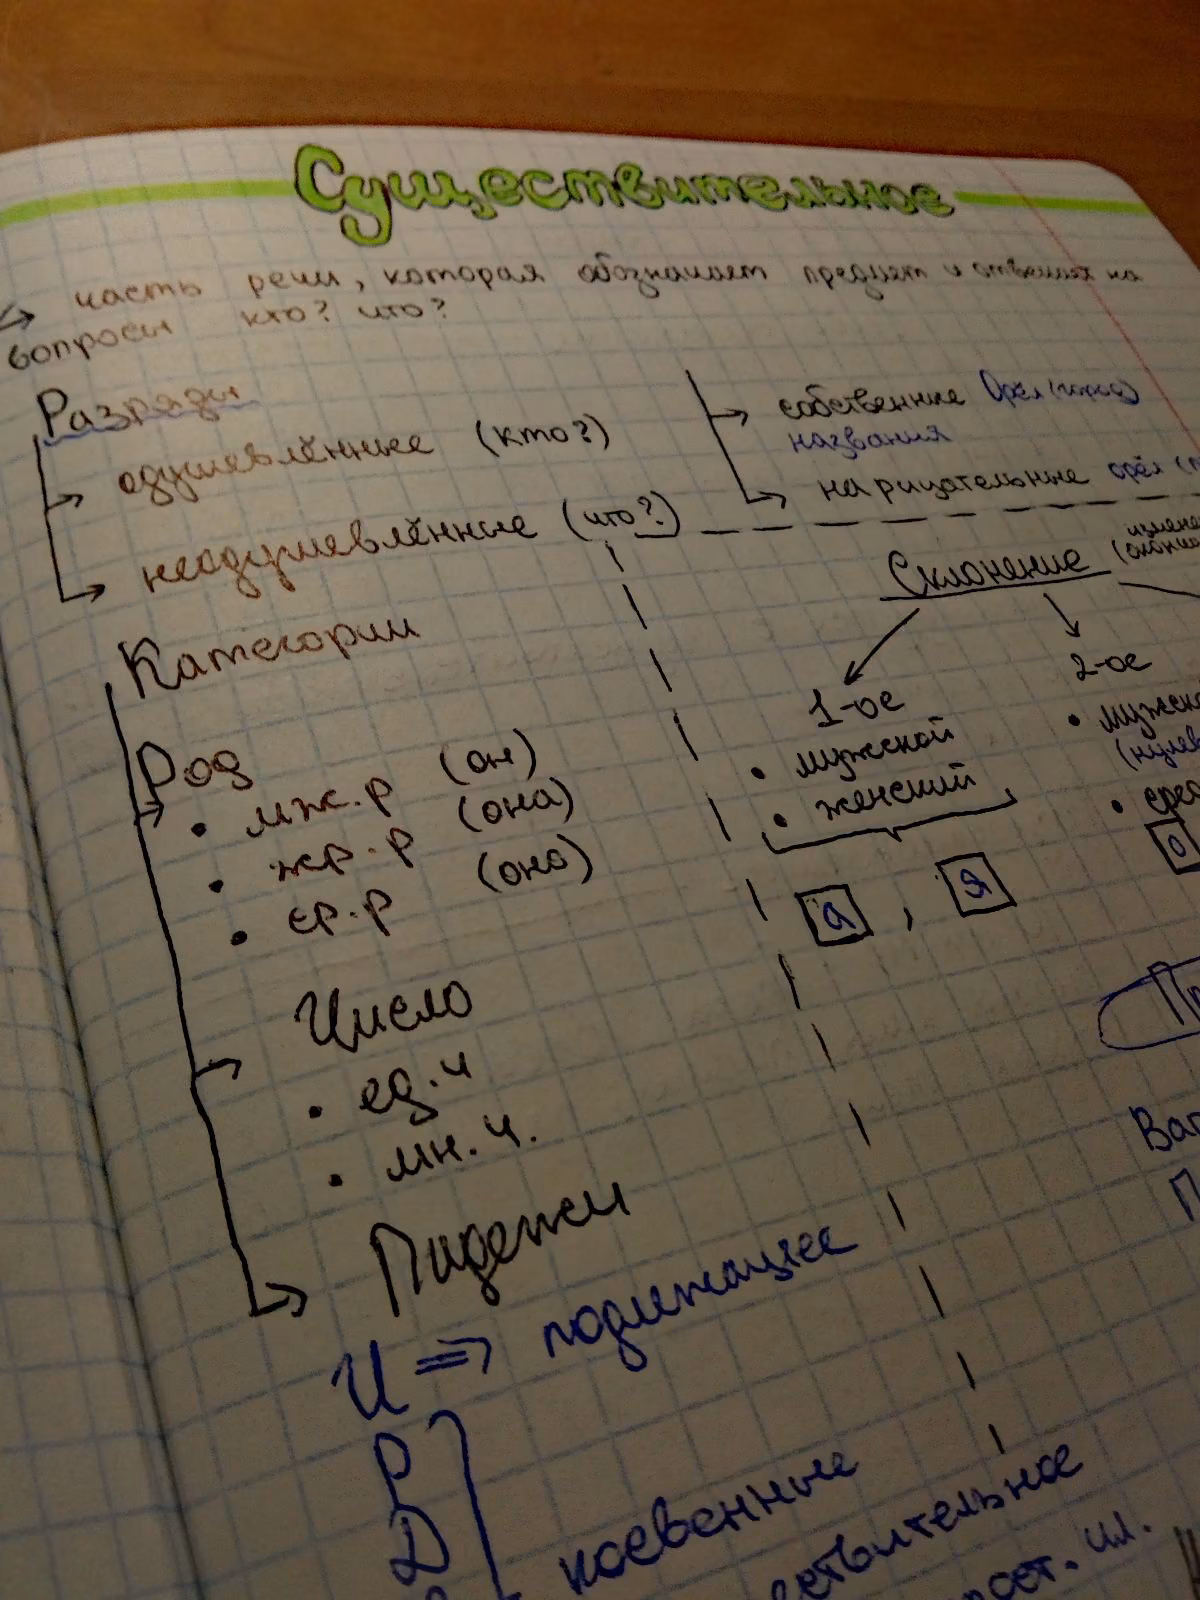 Существительное
часть речи, которая обозначает предмет и отвечает на
вопросы кто? что?
Разряды
одушевлённые (кто?)
неодушевлённые (что?)
собственные Орёл (город)
названия
нарицательные орёл
Категории
Род
• мж. р (он)
• жр. р (она)
• ср. р (оно)
Число
• ед. ч
• мн. ч.
Падежи
И => подлежащее
Р
Д
косвенные
Склонение
1-ое
• мужской
• женский
а , я
2-ое
•
•
о